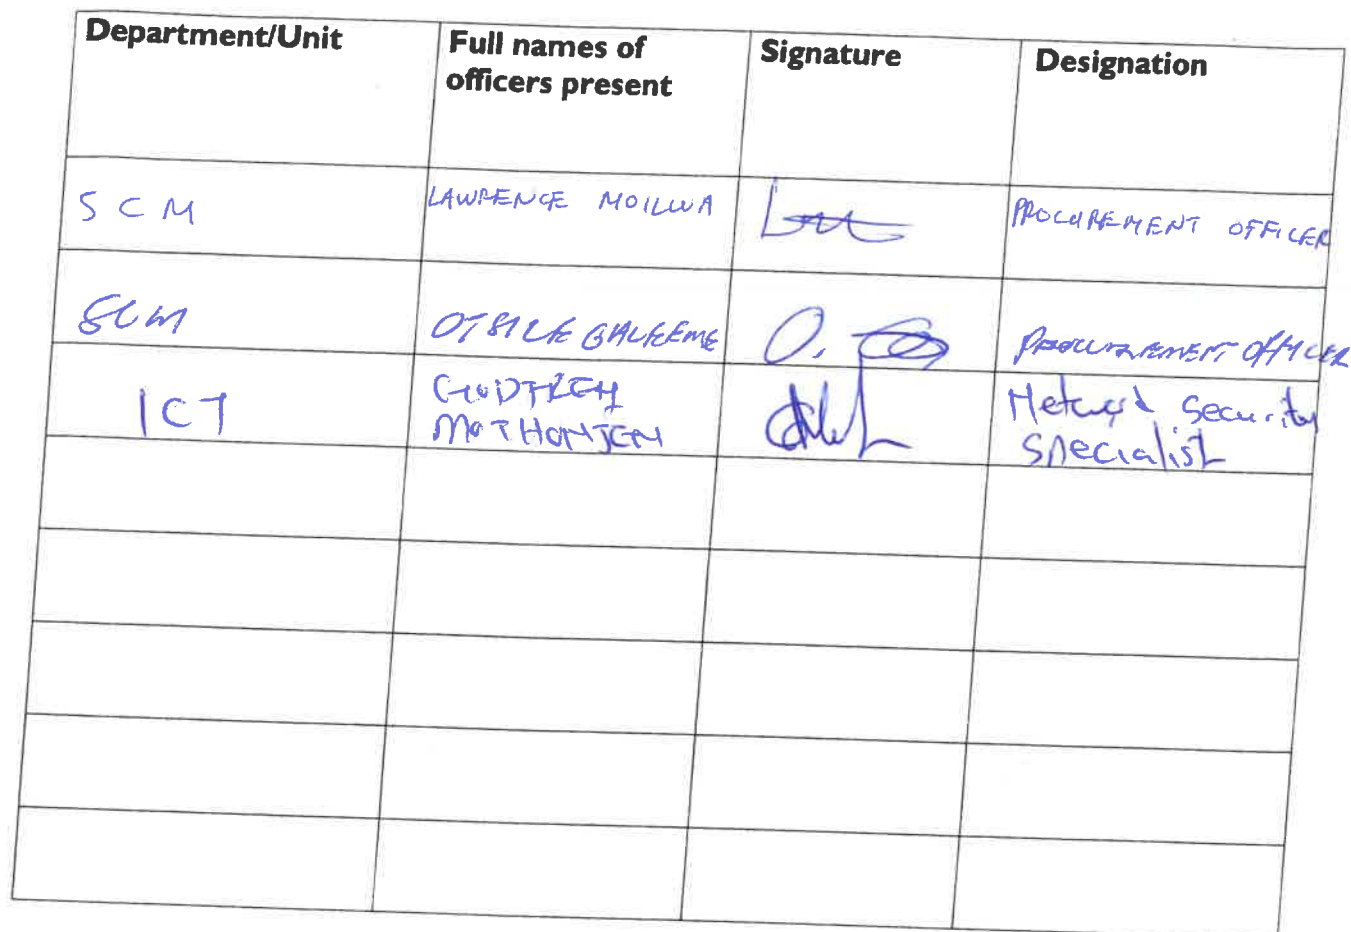 Department/Unit
Full names of
officers present
Signature
Designation
SCM
LAWRENCE MOILWA
PROCUREMENT OFFICER
SCM
OTSILE
PROCUREMENT OFFICER
ICT
GODFREY
Network Security
Specialist